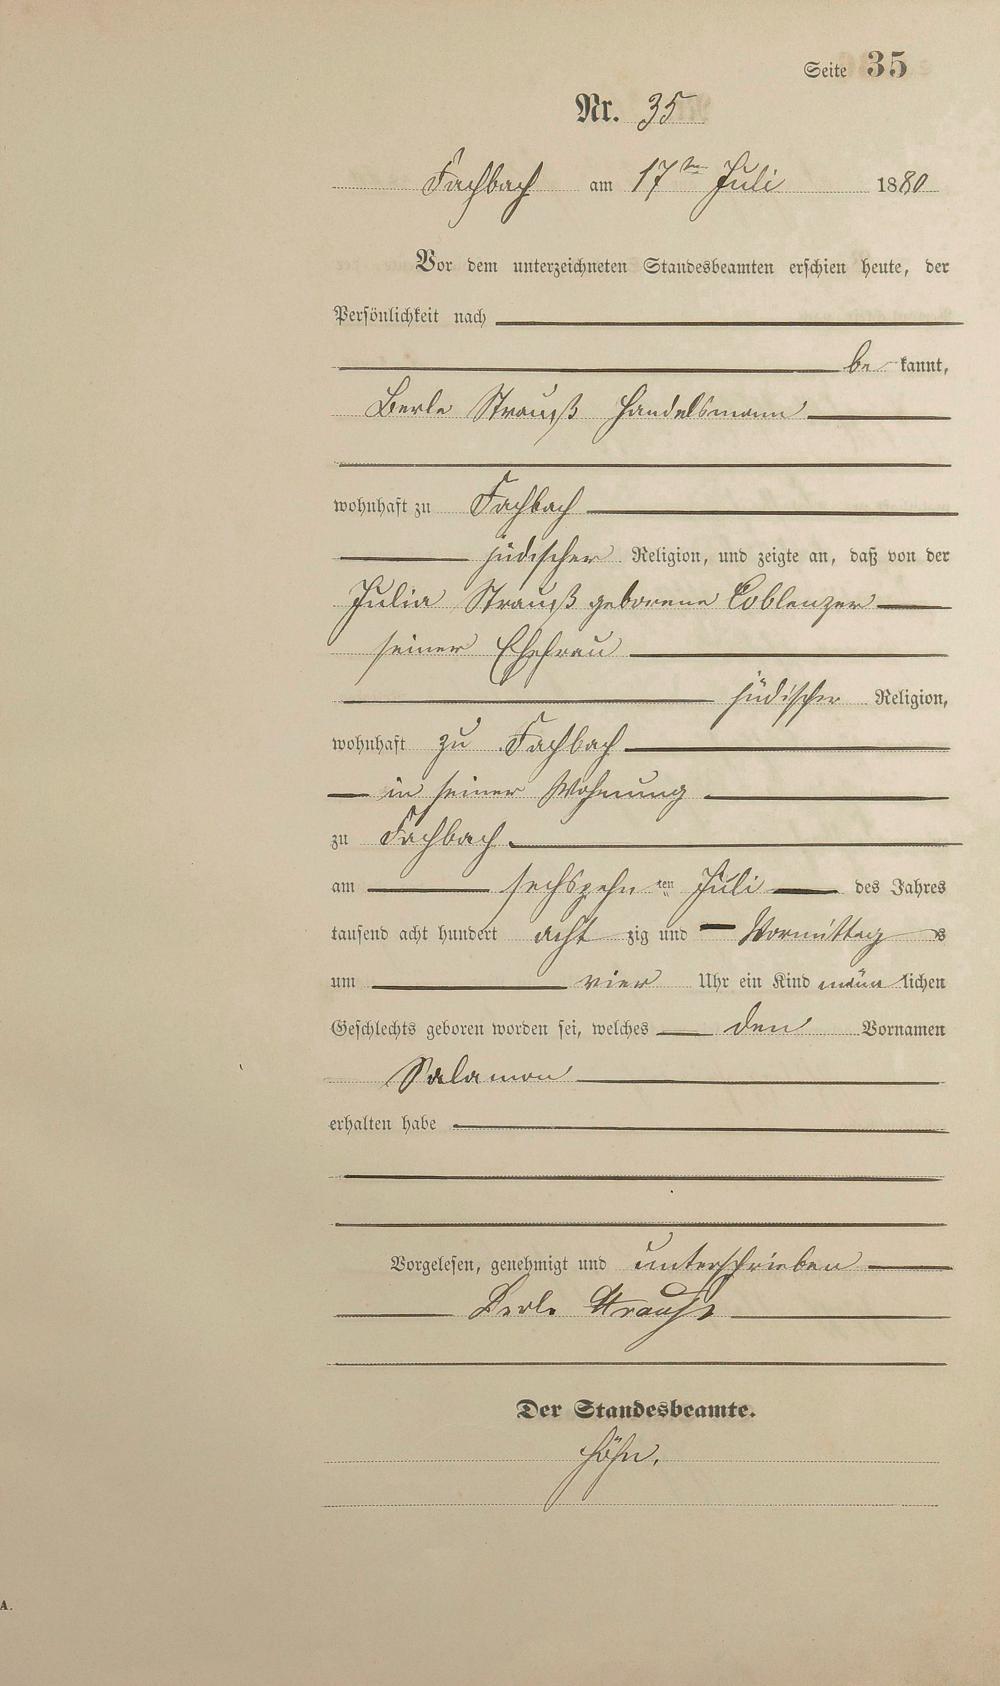 Seite 35
Nr. 35
Fachbach am 17ten Juli 1880
Vor dem unterzeichneten Standesbeamten erschien heute, der
Persönlichkeit nach
be kannt,
Berle Strauß Handelsmann
wohnhaft zu Fachbach
jüdischer Religion, und zeigte an, daß von der
Julia Strauß geborene Coblenzer
seiner Ehefrau
jüdischer Religion,
wohnhaft zu Fachbach
in seiner Wohnung
zu Fachbach
am sechszehn ten Juli des Jahres
tausend acht hundert acht zig und Vormittag s
um vier Uhr ein Kind männ lichen
Geschlechts geboren worden sei, welches den Vornamen
Salamon
erhalten habe
Vorgelesen, genehmigt und unterschrieben
Berle Strauß
Der Standesbeamte.
Höhn.
A.